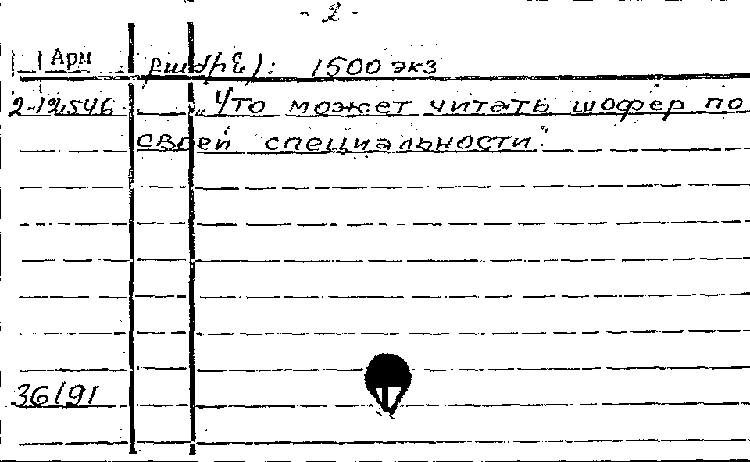 - 2 -
Арм բաժին): 1500 экз
2-12546 „Что может читать шофер по
своей специальности“.
36191